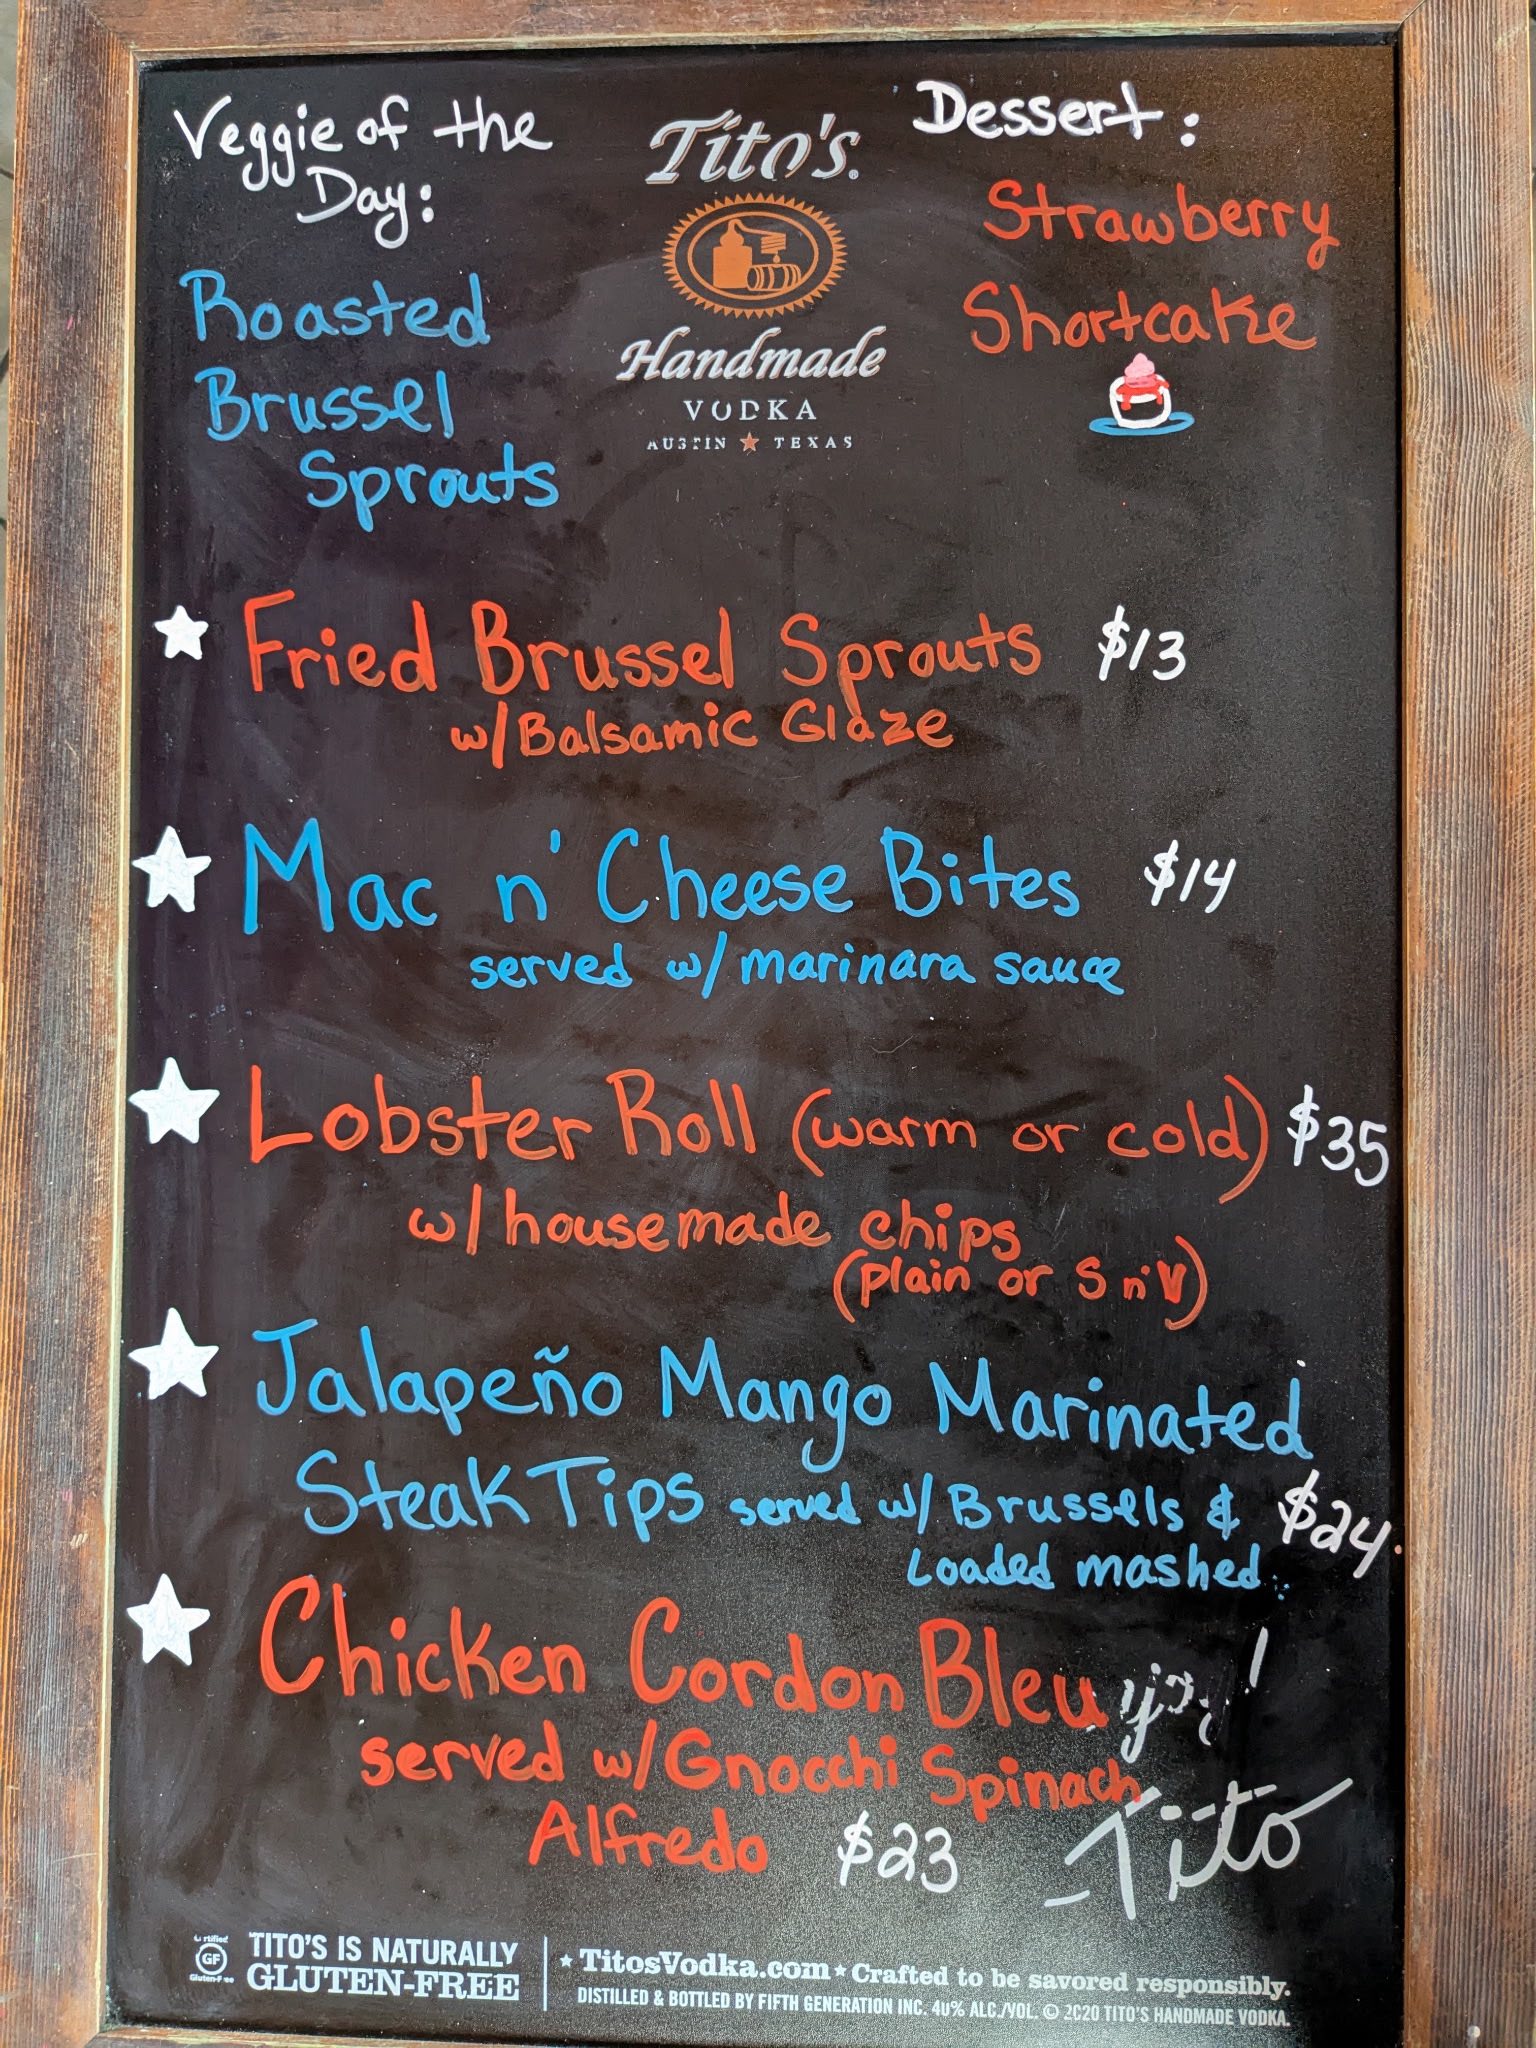 Veggie of the
Day:
Roasted
Brussel
Sprouts
Tito's.
Handmade
VODKA
AUSTIN ★ TEXAS
Dessert:
Strawberry
Shortcake
★ Fried Brussel Sprouts $13
w/Balsamic Glaze
★ Mac n' Cheese Bites $14
served w/marinara sauce
★ Lobster Roll (warm or cold) $35
w/housemade chips
(plain or S n' V)
★ Jalapeño Mango Marinated
Steak Tips served w/Brussels & $24
Loaded mashed
★ Chicken Cordon Bleu
served w/Gnocchi Spinach
Alfredo $23
Tito
GF
Gluten-Free
TITO'S IS NATURALLY
GLUTEN-FREE
★ TitosVodka.com ★ Crafted to be savored responsibly.
DISTILLED & BOTTLED BY FIFTH GENERATION INC. 40% ALC./VOL. © 2020 TITO'S HANDMADE VODKA.